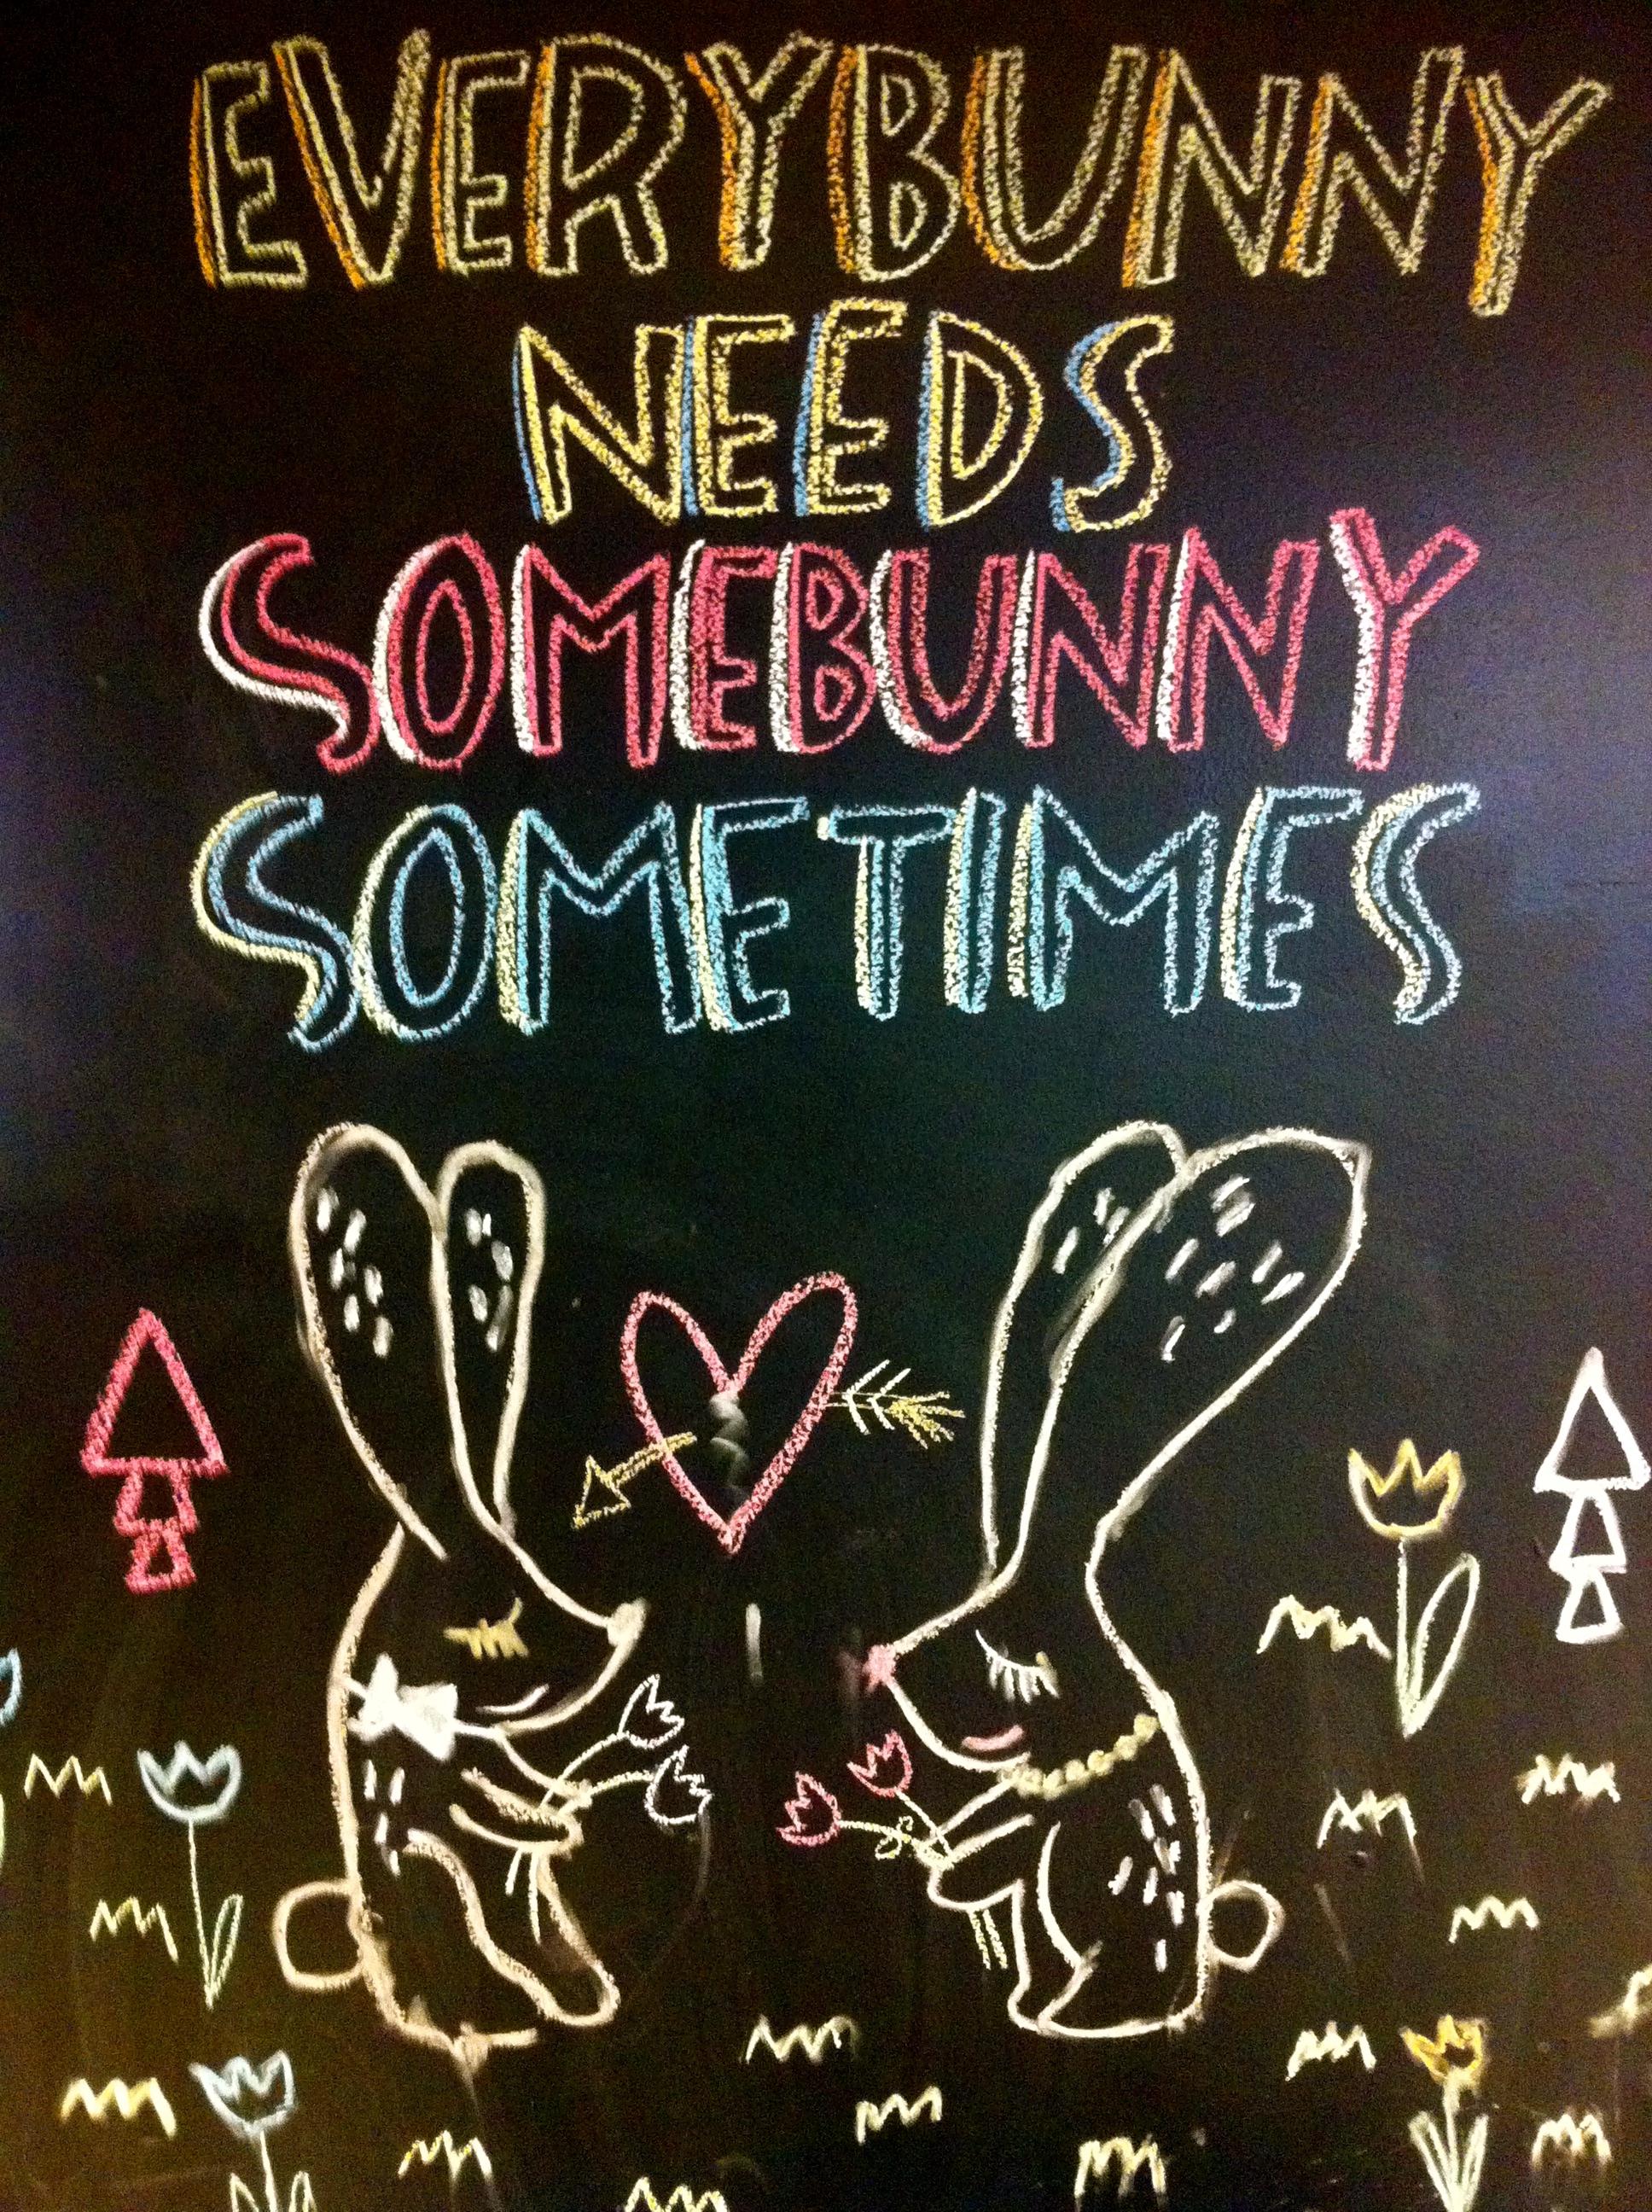 EVERYBUNNY
NEEDS
SOMEBUNNY
SOMETIMES